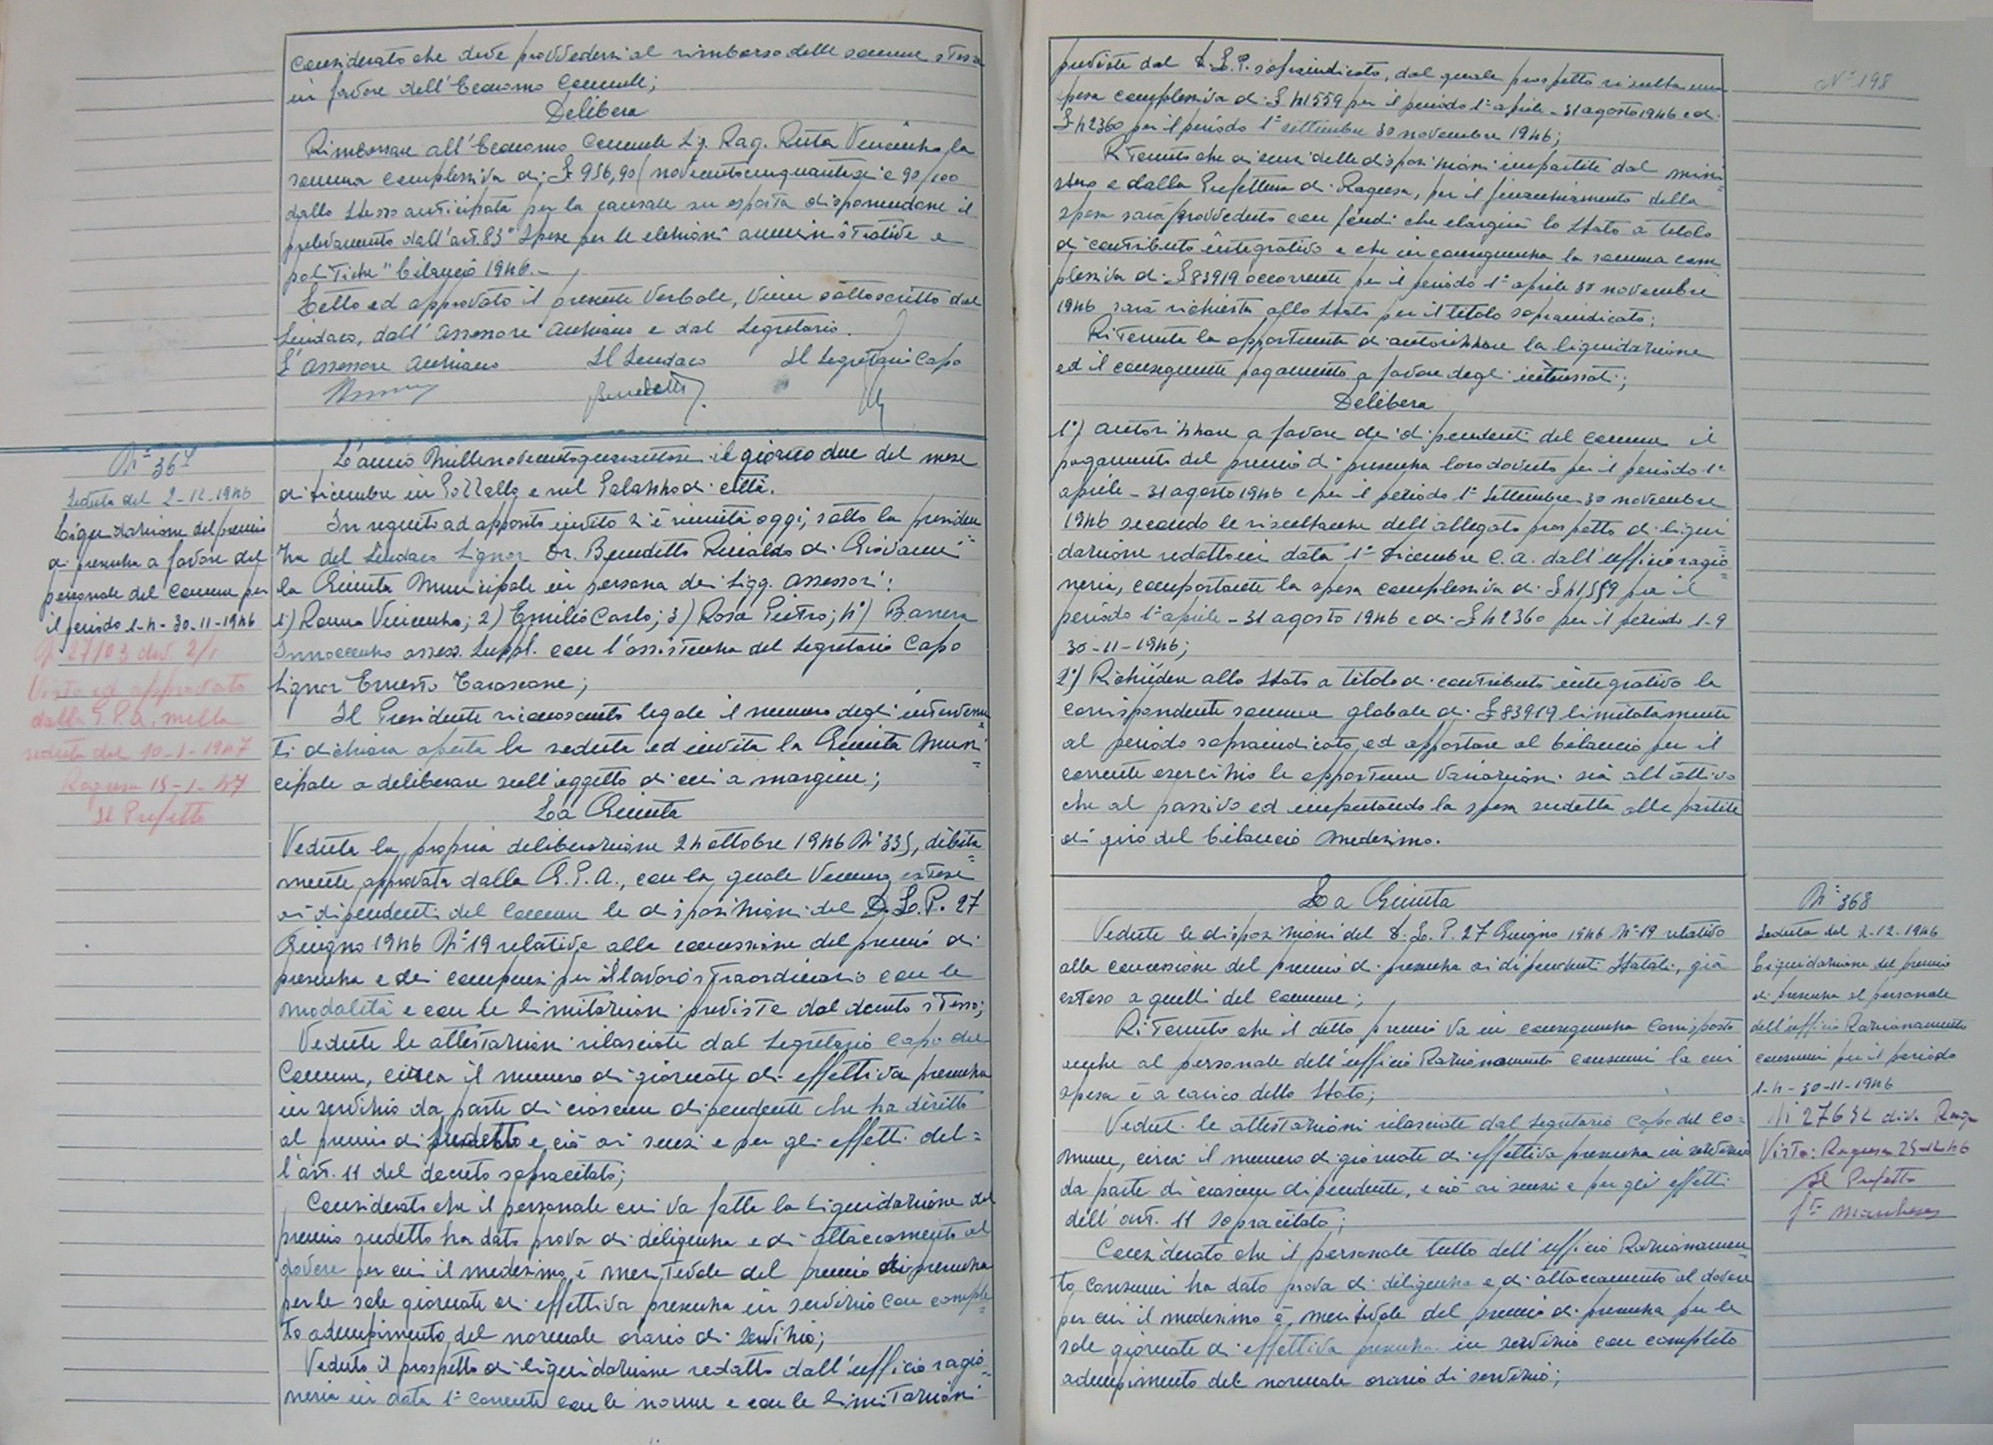 considerato che deve provvedersi al rimborso delle somme stesse
in favore dell'Economo Comunale;
Delibera
Rimborsare all'Economo Comunale Sig. Rag. Ruta Vincenzo la
somma complessiva di £ 956,90 (novecentocinquantasei e 90/100
dallo stesso anticipata per la causale su esposta disponendone il
prelevamento dall'art. 83 "Spese per le elezioni amministrative e
politiche" bilancio 1946.-
Letto ed approvato il presente verbale, viene sottoscritto dal
Sindaco, dall'Assessore Anziano e dal Segretario.
L'Assessore Anziano Il Sindaco Il Segretario Capo
Benedetti
N° 367
Seduta del 2-12-1946
Liquidazione del premio
di presenza a favore del
personale del Comune per
il periodo 1-4-30-11-1946
27103 div. 2/1
Visto ed approvato
dalla G.P.A. nella
seduta del 10-1-1947
Ragusa 15-1-47
Il Prefetto
L'anno Millenovecentoquarantasei il giorno due del mese
di dicembre in Pozzallo e nel Palazzo di città.
In seguito ad apposito invito si è riunita oggi, sotto la presiden
za del Sindaco Signor Dr. Benedetti Rinaldo di Giovanni
la Giunta Municipale in persona dei Sigg. Assessori:
1°) Vincenzo; 2) Emilio Carlo; 3) Rosa Pietro; 4°) Barrera
Innocenzo assess. suppl. con l'assistenza del Segretario Capo
Signor Ernesto Tarascone;
Il Presidente riconosciuto legale il numero degli intervenu
ti dichiara aperta la seduta ed invita la Giunta Muni=
cipale a deliberare sull'oggetto di cui a margine;
La Giunta
Veduta la propria deliberazione 24 ottobre 1946 N° 335, debita=
mente approvata dalla G.P.A., con la quale vennero estese
ai dipendenti del Comune le disposizioni del D.L.P. 27
Giugno 1946 N° 19 relative alla concessione del premio di
presenza e dei compensi per il lavoro straordinario con le
modalità e con le limitazioni previste dal decreto stesso;
Vedute le attestazioni rilasciate dal Segretario Capo del
Comune, circa il numero di giornate di effettiva presenza
in servizio da parte di ciascun dipendente che ha diritto
al premio di predetto e ciò ai sensi e per gli effetti del=
l'art. 11 del decreto sopracitato;
Considerato che il personale cui va fatta la liquidazione del
premio suddetto ha dato prova di diligenza e di attaccamento al
dovere per cui il medesimo è meritevole del premio di presenza
per le sole giornate di effettiva presenza in servizio con comple=
to adempimento del normale orario di servizio;
Veduto il prospetto di liquidazione redatto dall'ufficio ragio=
neria in data 1° corrente con le norme e con le limitazioni
N° 198
previste dal D.L.P. sopraindicato, dal quale prospetto risulta una
spesa complessiva di £ 41559 per il periodo 1° aprile - 31 agosto 1946 e di
£ 42360 per il periodo 1° settembre 30 novembre 1946;
Ritenuto che ai sensi delle disposizioni impartite dal mini=
stero e dalla Prefettura di Ragusa, per il finanziamento della
spesa sarà provveduto con fondi che elargirà lo Stato a titolo
di contributo integrativo e che in conseguenza la somma com
plessiva di £ 83919 occorrente per il periodo 1° aprile 30 novembre
1946 sarà richiesta allo Stato per il titolo sopraindicato;
Ritenuta la opportunità di autorizzare la liquidazione
ed il conseguente pagamento a favore degli interessati;
Delibera
1°) autorizzare a favore dei dipendenti del Comune il
pagamento del premio di presenza loro dovuto per il periodo 1°
aprile - 31 agosto 1946 e per il periodo 1° Settembre 30 novembre
1946 secondo le risultanze dell'allegato prospetto di liqui
dazione redatto in data 1° dicembre c.a. dall'ufficio ragio=
neria, comportante la spesa complessiva di £ 41559 per il
periodo 1° aprile - 31 agosto 1946 e di £ 42360 per il periodo 1-9
30-11-1946;
2°) Richiedere allo Stato a titolo di contributo integrativo la
corrispondente somma globale di £ 83919 limitatamente
al periodo sopraindicato, ed apportare al bilancio per il
corrente esercizio le opportune variazioni sia all'attivo
che al passivo ed imputando la spesa sudetta alle partite
di giro del bilancio medesimo.
La Giunta
Vedute le disposizioni del D.L.P. 27 Giugno 1946 N° 19 relativo
alla concessione del premio di presenza ai dipendenti statali, già
esteso a quelli del Comune;
Ritenuto che il detto premio va in conseguenza corrisposto
anche al personale dell'ufficio Razionamento consumi la cui
spesa è a carico dello Stato;
Vedute le attestazioni rilasciate dal Segretario Capo del Co=
mune, circa il numero di giornate di effettiva presenza in servizio
da parte di ciascun dipendente, e ciò ai sensi e per gli effetti
dell'art. 11 sopracitato;
Considerato che il personale tutto dell'ufficio Razionamen=
to consumi ha dato prova di diligenza e di attaccamento al dovere
per cui il medesimo è meritevole del premio di presenza per le
sole giornate di effettiva presenza in servizio con completo
adempimento del normale orario di servizio;
N° 368
Seduta del 2-12-1946
Liquidazione del premio
di presenza al personale
dell'ufficio Razionamento
consumi per il periodo
1-4-30-11-1946
N° 27632 div. Rag
Visto: Ragusa 25-12-46
Il Prefetto